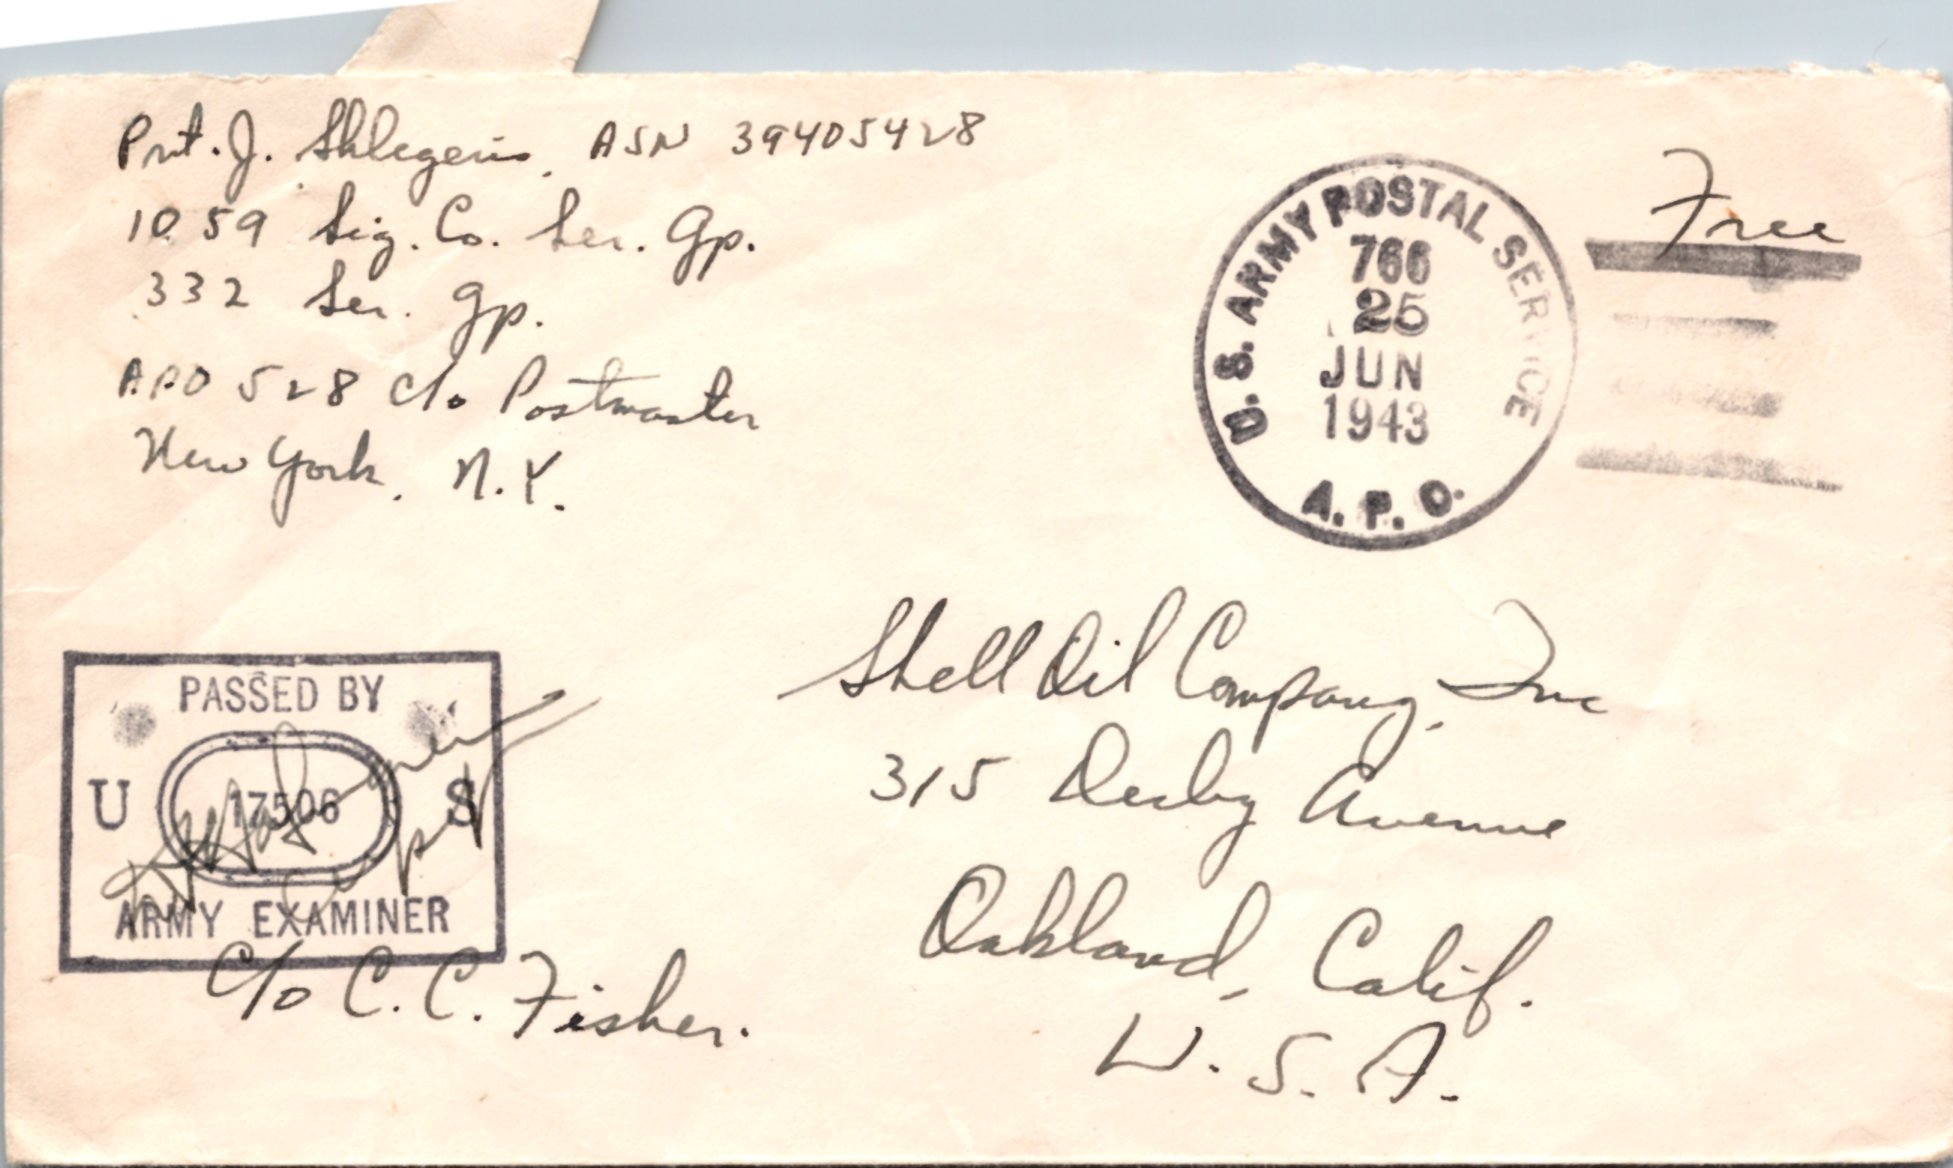 Pvt. J. Shlegeris, ASN 39405428
1059 Sig. Co. Ser. Gp.
332 Ser. Gp.
APO 528 c/o Postmaster
New York, N.Y.
Free
U.S. ARMY POSTAL SERVICE
766
25
JUN
1943
A.P.O.
Shell Oil Company, Inc
315 Derby Avenue
Oakland, Calif.
U.S.A.
PASSED BY
U 17506 S
ARMY EXAMINER
c/o C. C. Fisher.